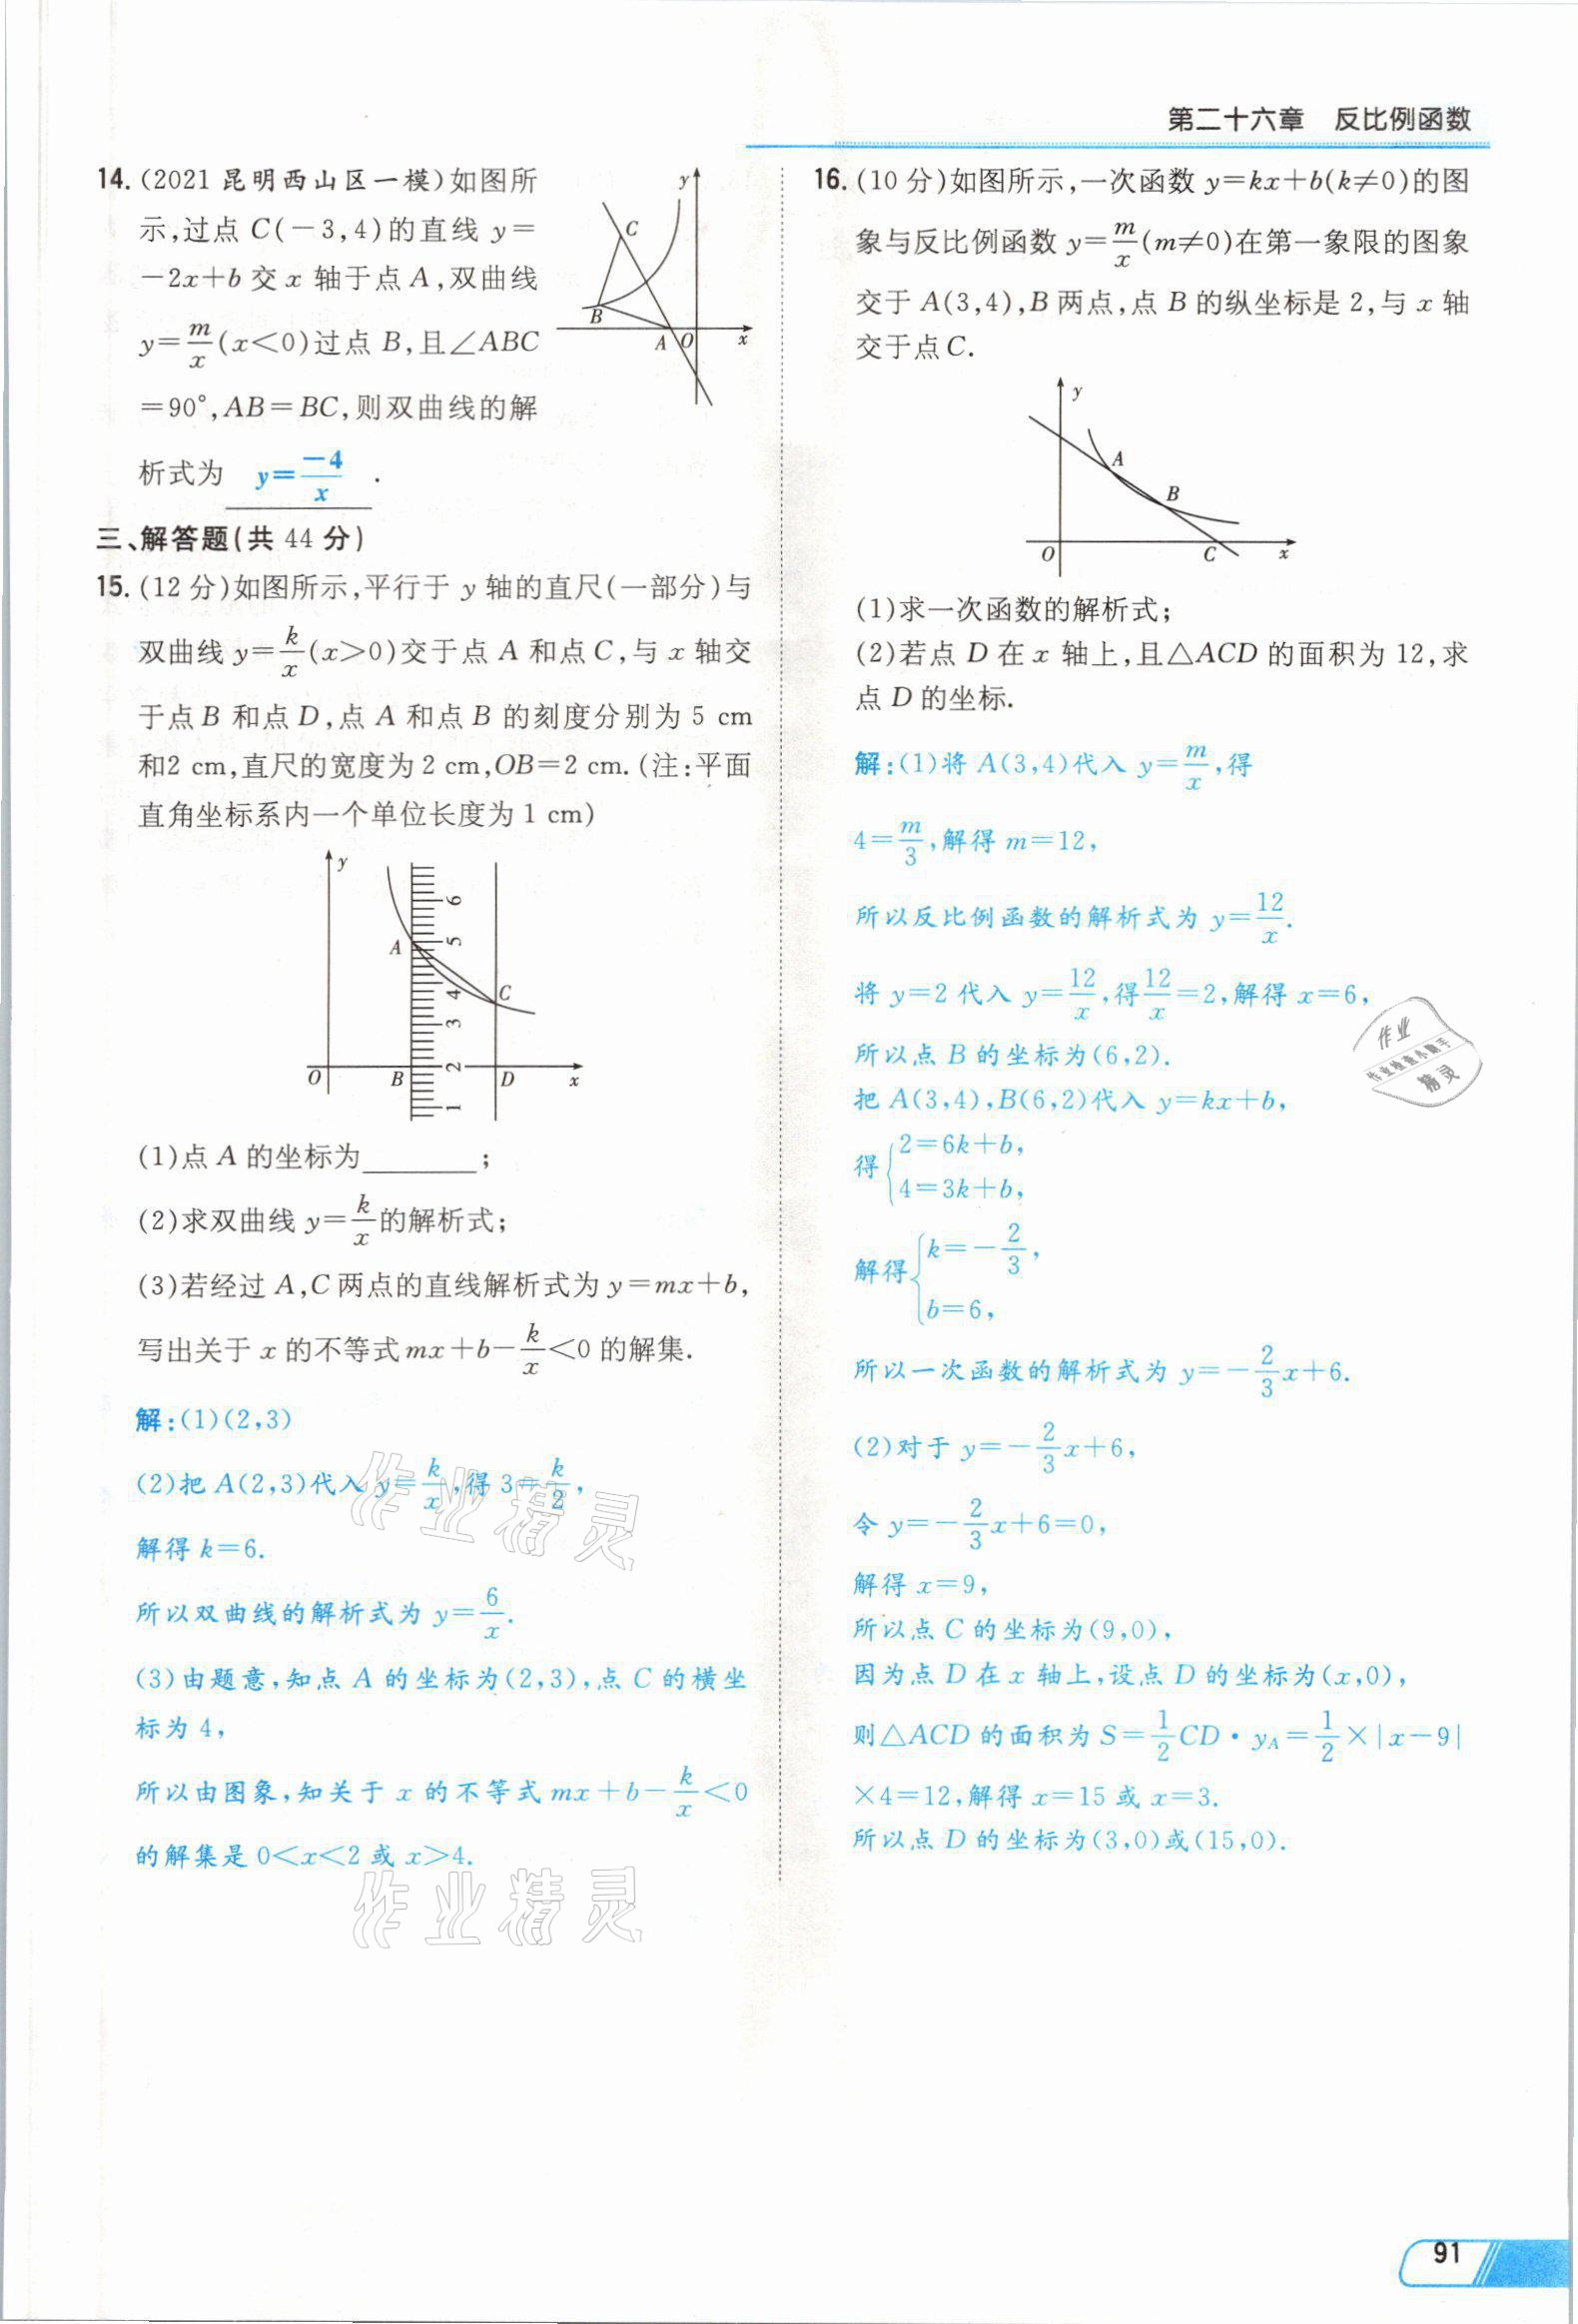 第二十六章 反比例函数
14. (2021 昆明西山区一模)如图所
示,过点 C(-3,4)的直线 y=
-2x+b 交 x 轴于点 A,双曲线
y=m/x(x<0)过点 B,且∠ABC
=90°,AB=BC,则双曲线的解
析式为 y=-4/x .
y
C
B
A
O
x
三、解答题(共 44 分)
15. (12 分)如图所示,平行于 y 轴的直尺(一部分)与
双曲线 y=k/x(x>0)交于点 A 和点 C,与 x 轴交
于点 B 和点 D,点 A 和点 B 的刻度分别为 5 cm
和2 cm,直尺的宽度为 2 cm,OB=2 cm.(注:平面
直角坐标系内一个单位长度为 1 cm)
y
6
A
5
4
C
3
O
B
2
D
x
1
(1)点 A 的坐标为________;
(2)求双曲线 y=k/x的解析式;
(3)若经过 A,C 两点的直线解析式为 y=mx+b,
写出关于 x 的不等式 mx+b-k/x<0 的解集.
解:(1)(2,3)
(2)把 A(2,3)代入 y=k/x,得 3=k/2,
解得 k=6.
所以双曲线的解析式为 y=6/x.
(3)由题意,知点 A 的坐标为(2,3),点 C 的横坐
标为 4,
所以由图象,知关于 x 的不等式 mx+b-k/x<0
的解集是 0<x<2 或 x>4.
作业精灵
作业精灵
16. (10 分)如图所示,一次函数 y=kx+b(k≠0)的图
象与反比例函数 y=m/x(m≠0)在第一象限的图象
交于 A(3,4),B 两点,点 B 的纵坐标是 2,与 x 轴
交于点C.
y
A
B
O
C
x
(1)求一次函数的解析式;
(2)若点 D 在 x 轴上,且△ACD 的面积为 12,求
点 D 的坐标.
解:(1)将 A(3,4)代入 y=m/x,得
4=m/3,解得 m=12,
所以反比例函数的解析式为 y=12/x.
将 y=2 代入 y=12/x,得12/x=2,解得 x=6,
所以点 B 的坐标为(6,2).
把 A(3,4),B(6,2)代入 y=kx+b,
得{2=6k+b,
4=3k+b,
解得{k=-2/3,
b=6,
所以一次函数的解析式为 y=-2/3x+6.
(2)对于 y=-2/3x+6,
令 y=-2/3x+6=0,
解得 x=9,
所以点 C 的坐标为(9,0),
因为点 D 在 x 轴上,设点 D 的坐标为(x,0),
则△ACD 的面积为 S=1/2CD·yA=1/2×|x-9|
×4=12,解得 x=15 或 x=3.
所以点 D 的坐标为(3,0)或(15,0).
作业
作业检查小助手
精灵
91